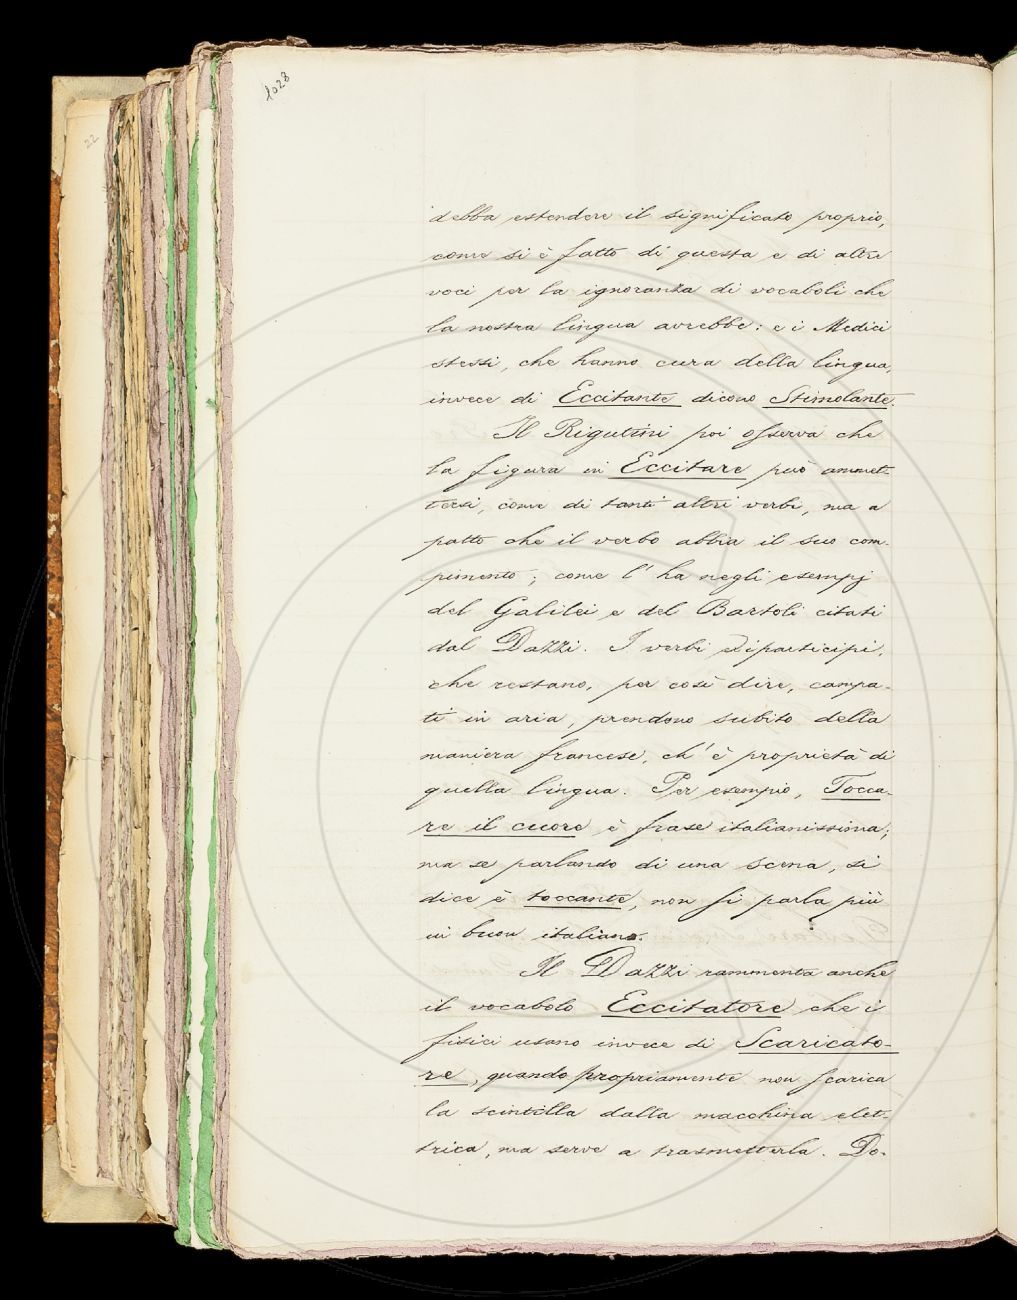 1028
22
debba estendere il significato proprio,
come si è fatto di questa e di altre
voci per la ignoranza di vocaboli che
la nostra lingua avrebbe: e i Medici
stessi, che hanno cura della lingua,
invece di Eccitante dicono Stimolante.
Il Rigutini poi osserva che
la figura in Eccitare può ammet-
tersi, come di tanti altri verbi, ma a
patto che il verbo abbia il suo com-
pimento; come l'ha negli esempj
del Galilei e del Bartoli citati
dal Dazzi. I verbi e i participi,
che restano, per così dire, campa-
ti in aria, prendono subito della
maniera francese, ch'è proprietà di
quella lingua. Per esempio, Tocca-
re il cuore è frase italianissima;
ma se parlando di una scena, si
dice è toccante, non si parla più
in buon italiano.
Il Dazzi rammenta anche
il vocabolo Eccitatore che i
fisici usano invece di Scaricato-
re, quando propriamente non scarica
la scintilla dalla macchina elet-
trica, ma serve a trasmetterla. Do-